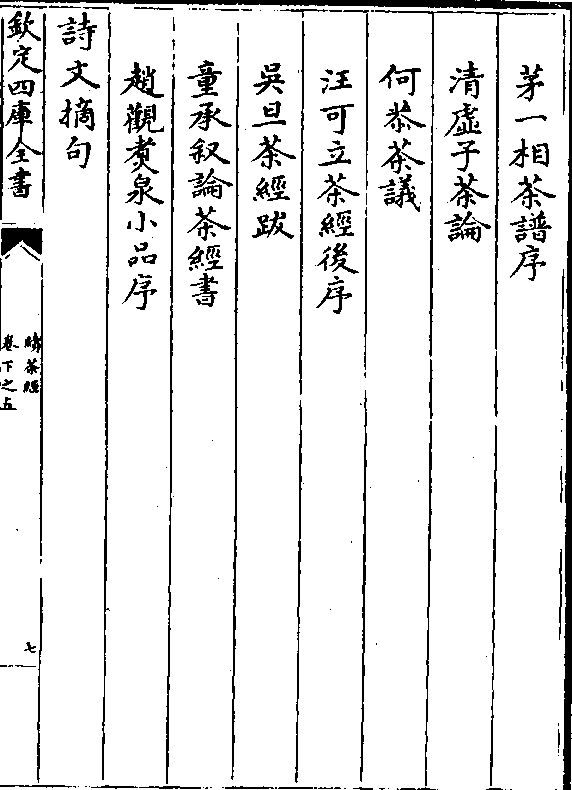 茅一相茶譜序
清虛子茶論
何恭茶議
汪可立茶經後序
吳旦茶經跋
童承叙論茶經書
趙觀煑泉小品序
詩文摘句
欽定四庫全書
續茶經
卷下之五
七